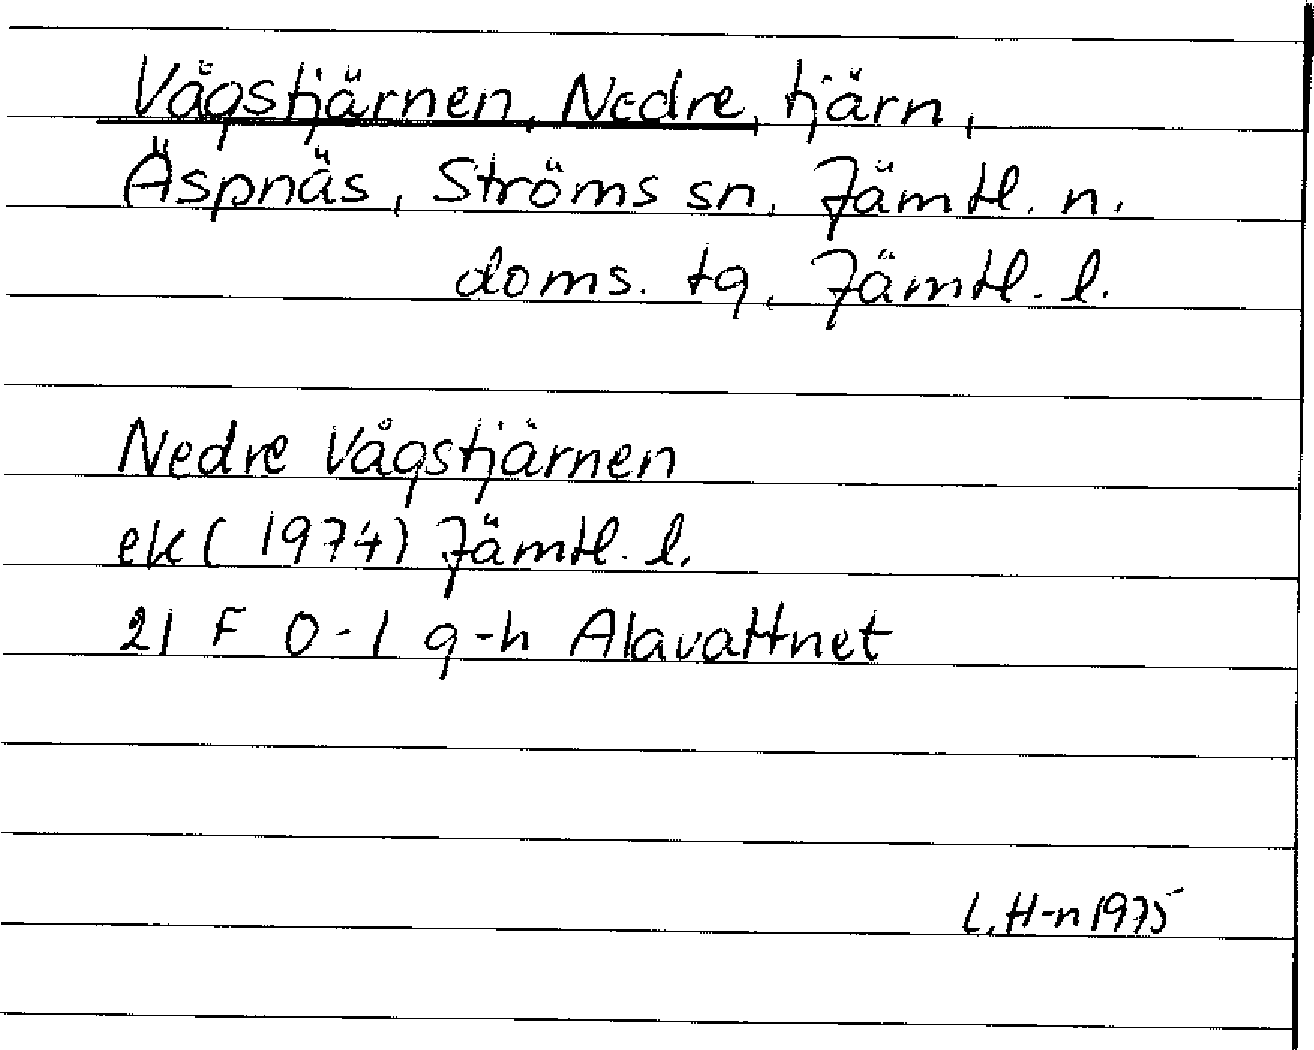 Vågstjärnen, Nedre, tjärn,
Äspnäs, Ströms sn, Jämtl. n.
doms. tg, Jämtl. l.
Nedre Vågstjärnen
ek (1974) Jämtl. l.
21 F 0-1 g-h Alavattnet
L. H-n 1975